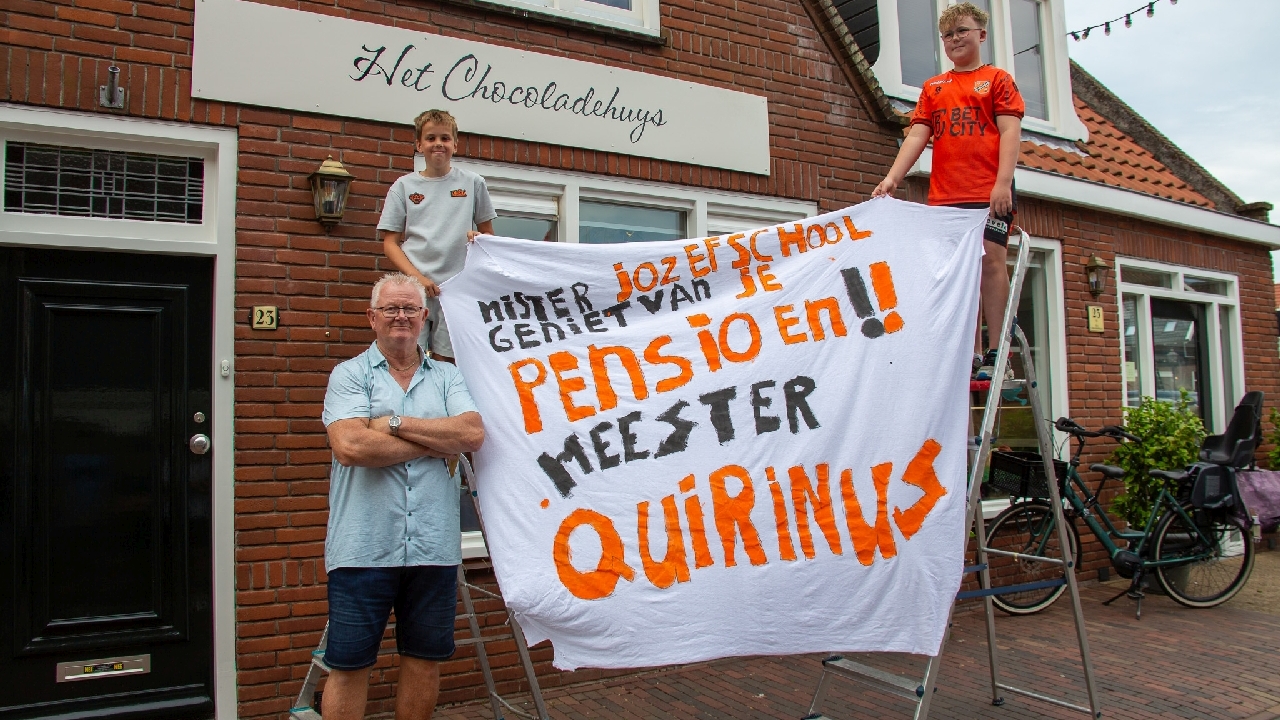 Het Chocoladehuys
BET
CITY
23
25
MISTER JOZEFSCHOOL
GENIET VAN JE
PENSIOEN!!
MEESTER
QUIRINUS